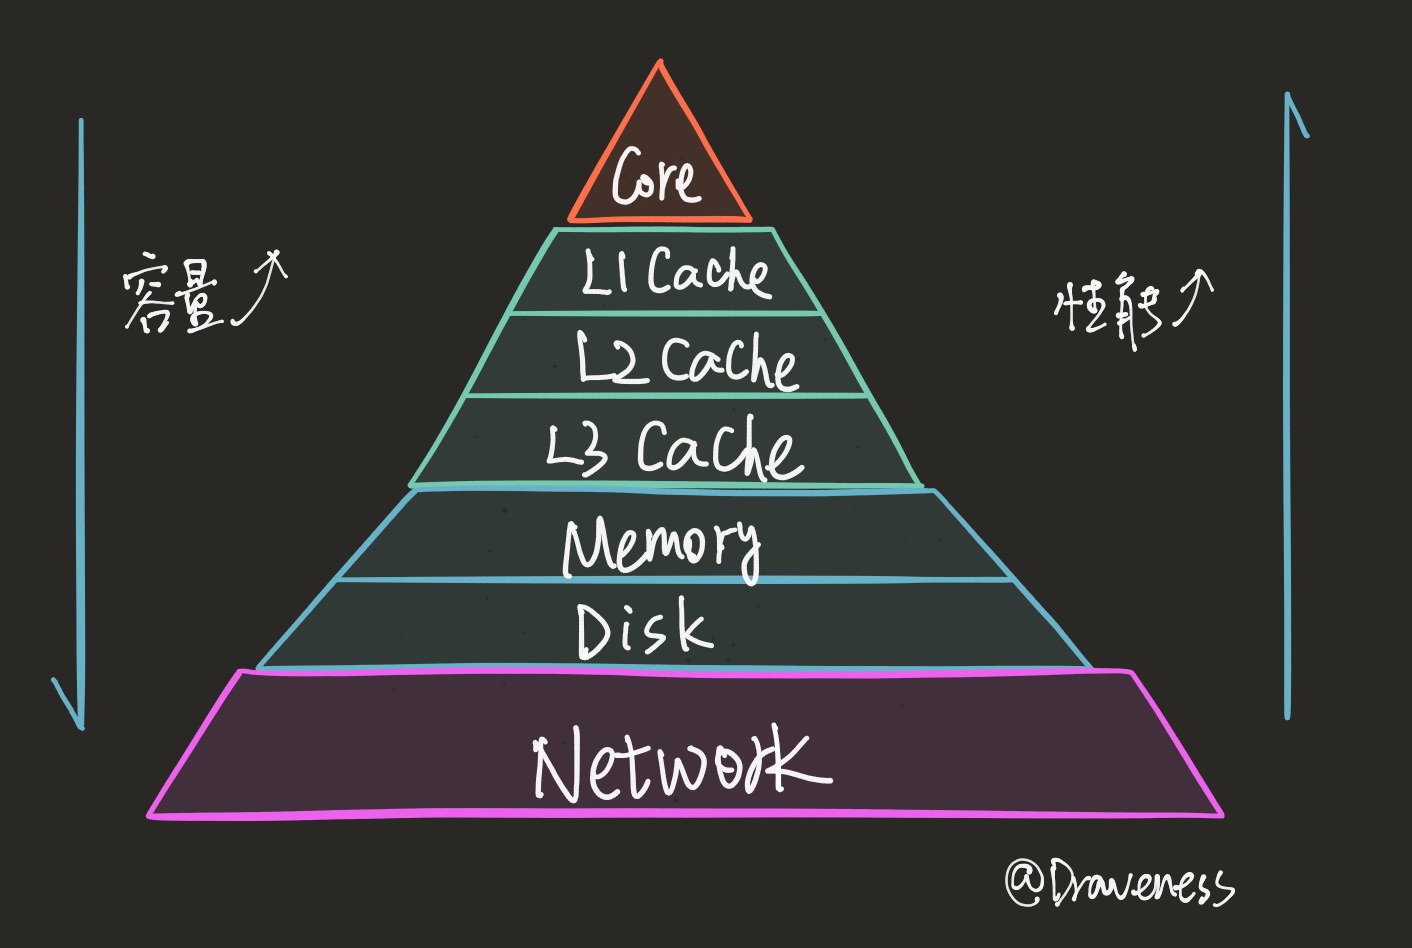 Core
L1 Cache
容量
性能
L2 Cache
L3 Cache
Memory
Disk
Network
@Draveness